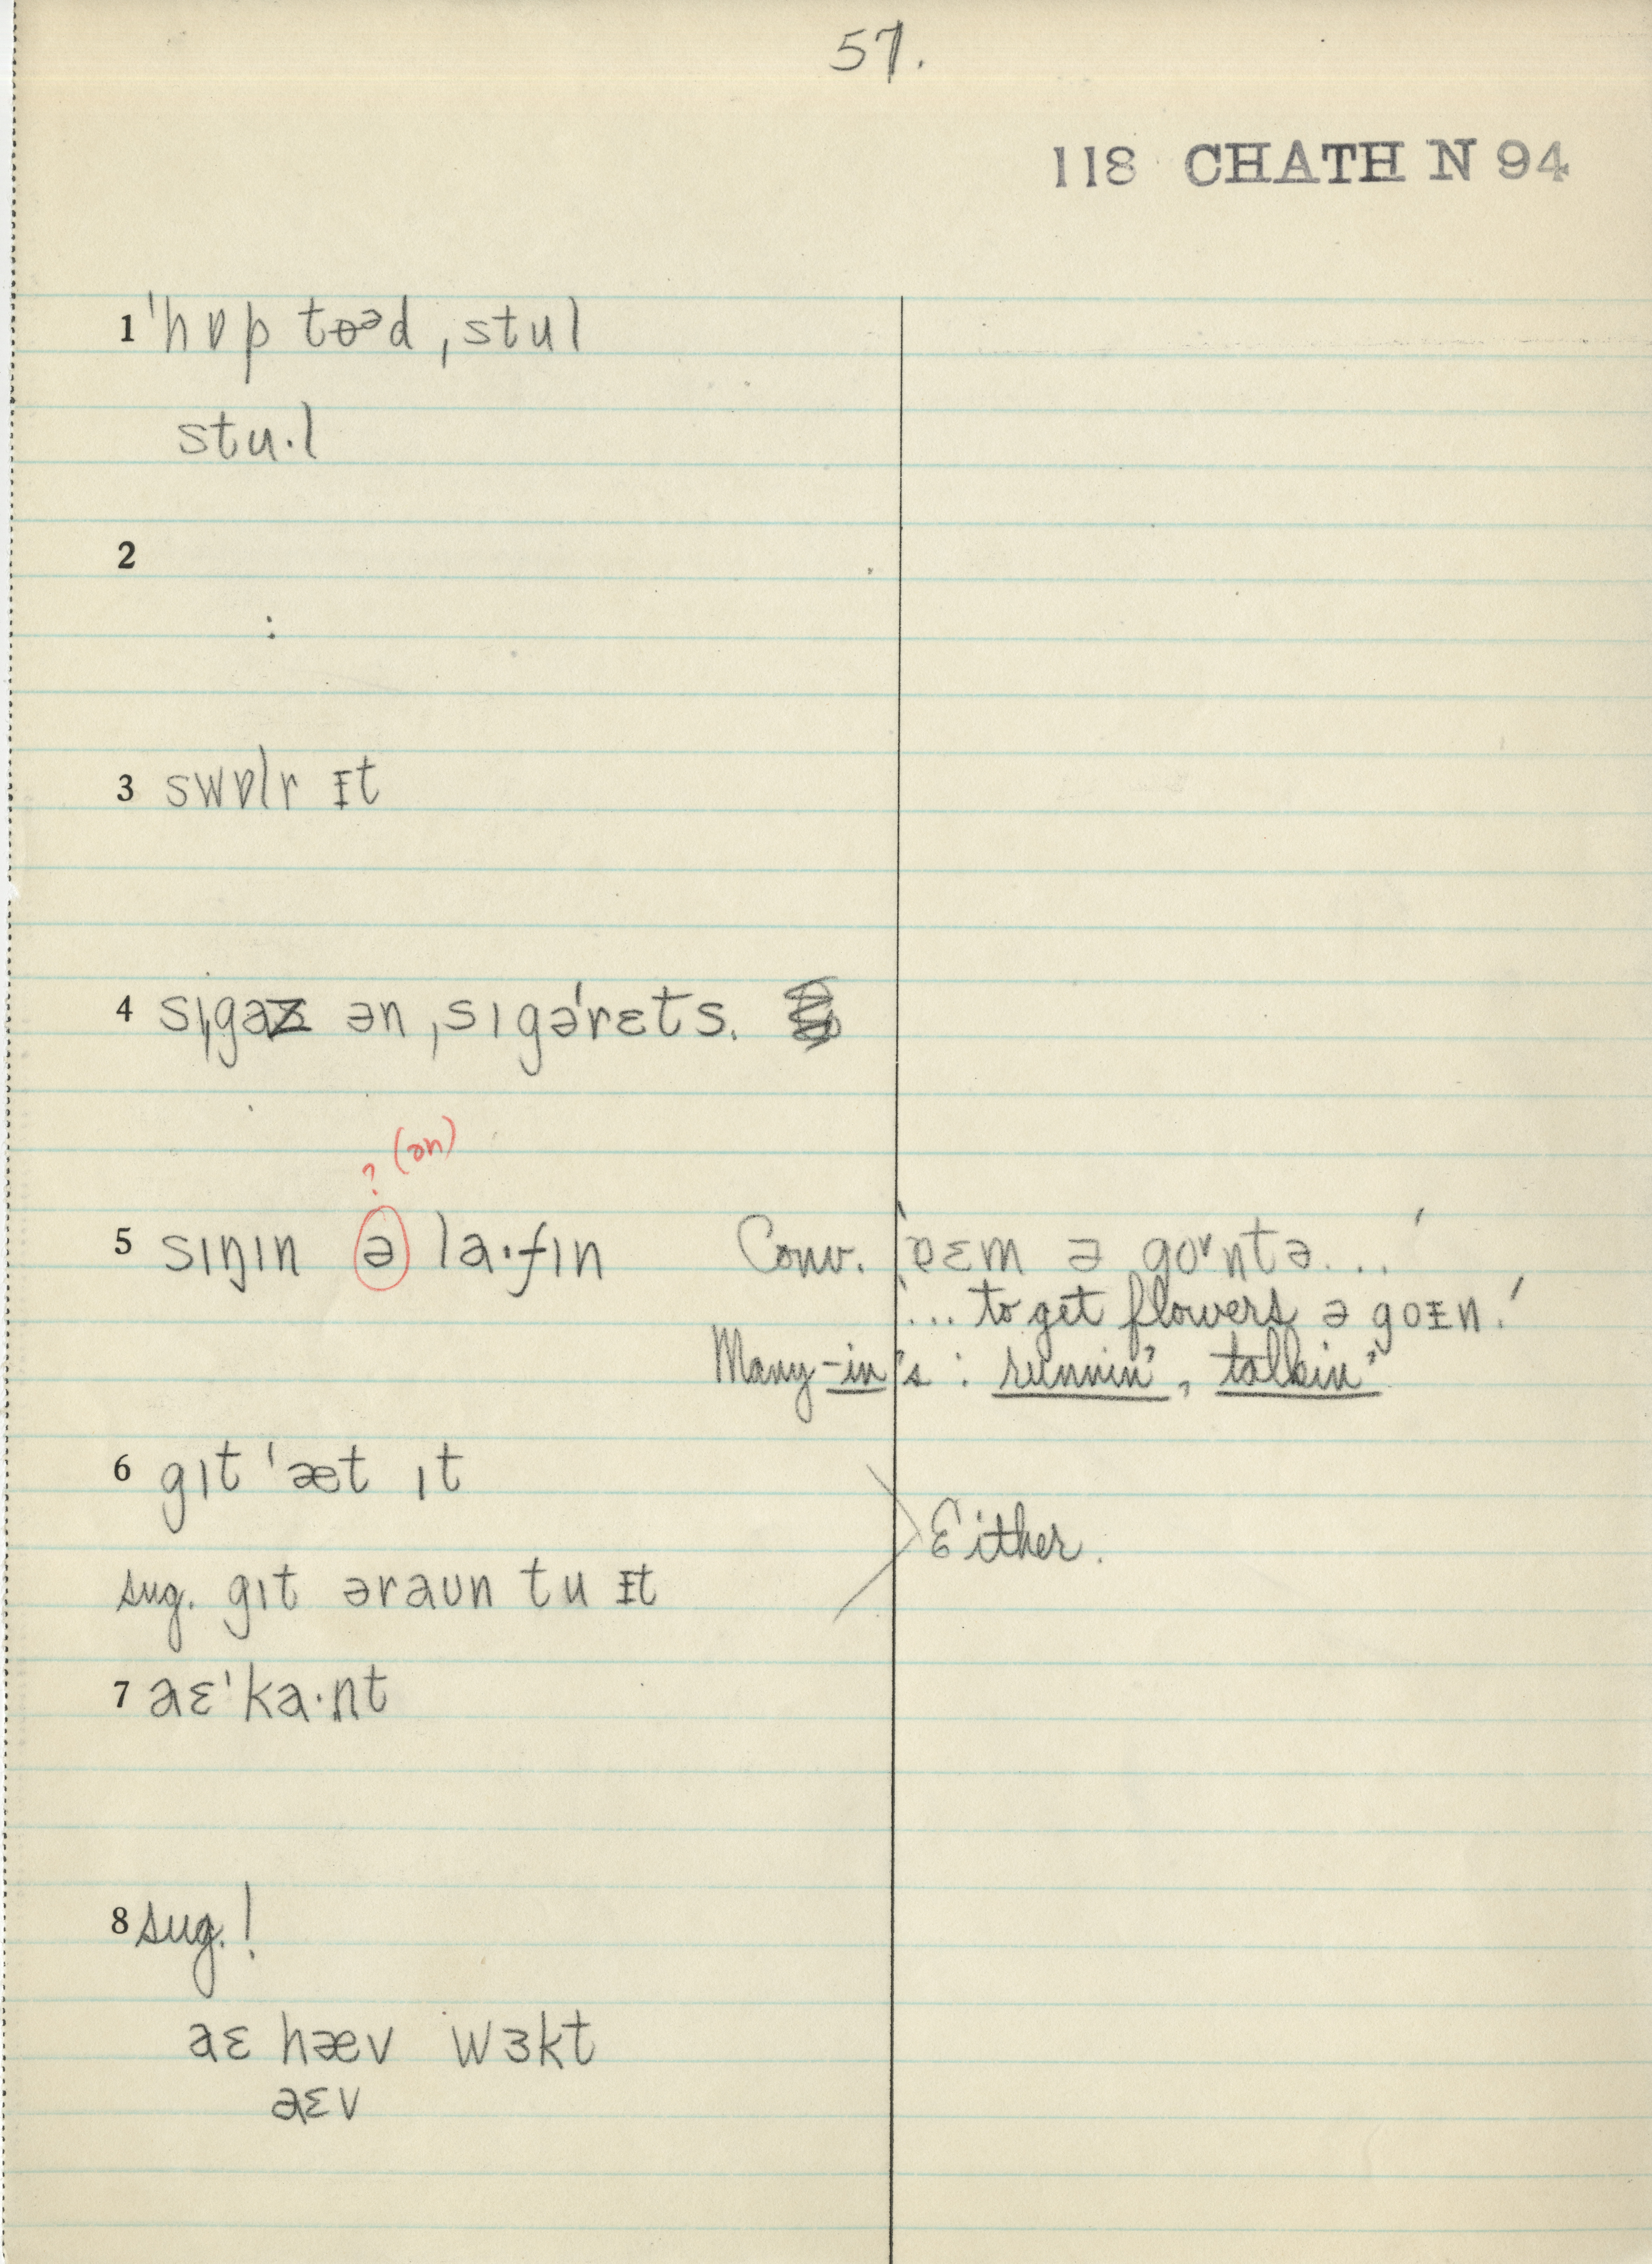 57.
118 CHATH N 94
1 ˈhɒp toᵊd, ˌstul
stu·l
2
3 swɒlr ᵻt
4 sɪˌgaz ən ˌsɪgəˈrɛts.
? (ən)
5 sɪŋɪn ə la·fɪn Conv. 'ɐɛm ə goᵛntə...'
'... to get flowers ə goᵻn.'
Many -in's : runnin', talkin'
6 gɪt ˈæt ɪt
Either.
sug. gɪt əraun tu ᵻt
7 aɛˈka·nt
8 sug.!
aɛ hæv wɜkt
aɛv